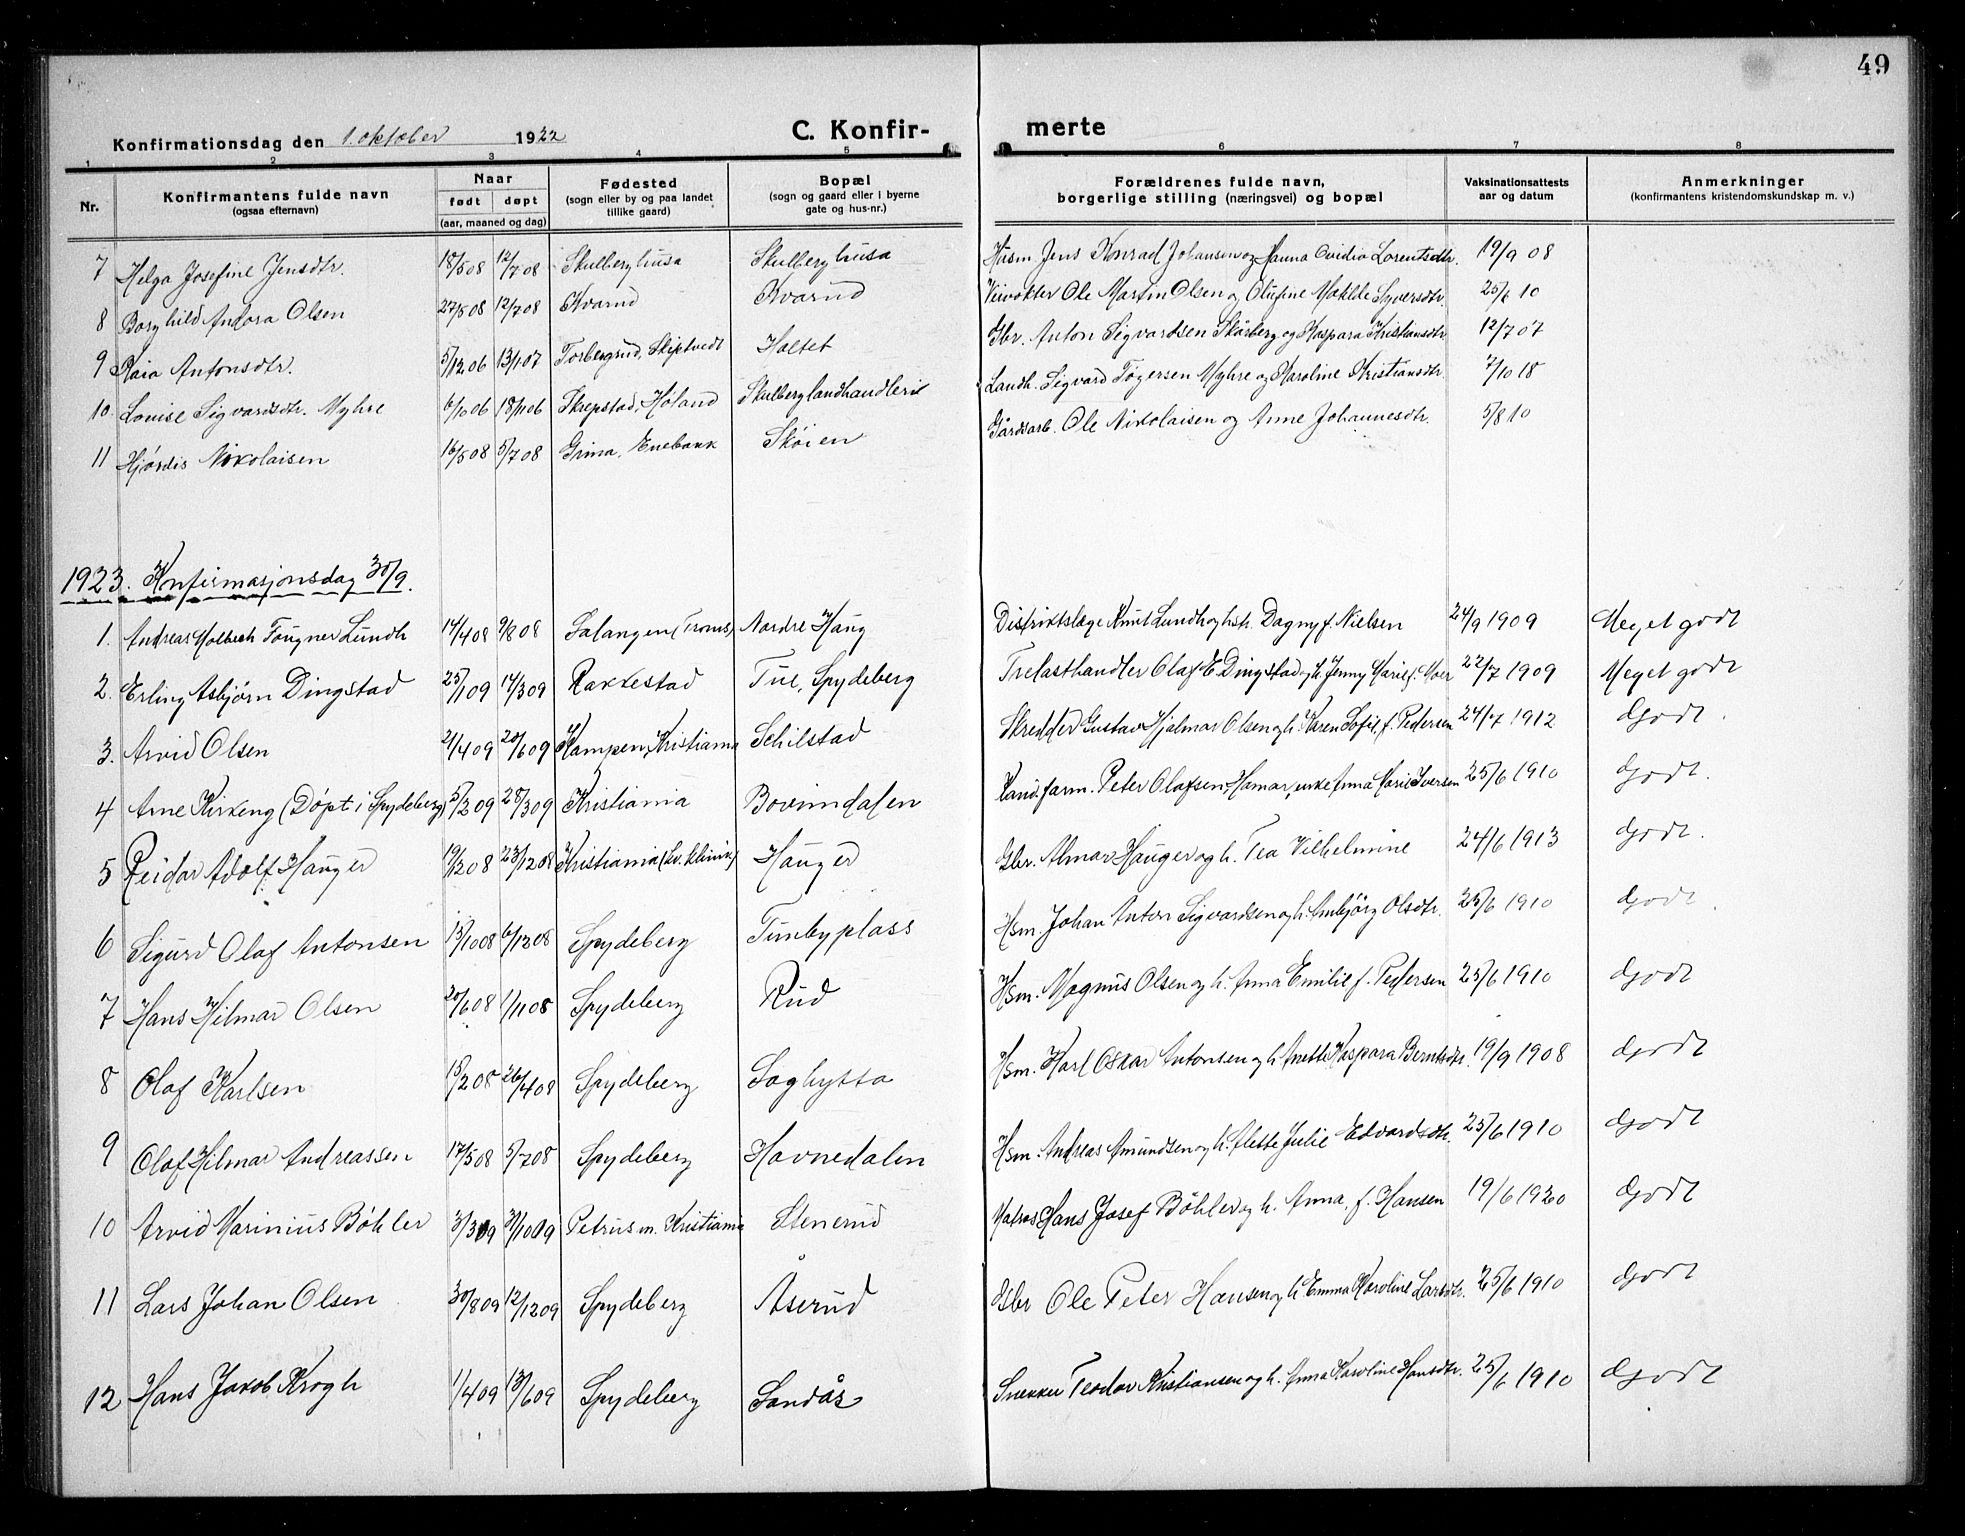 49
Konfirmationsdag den 1. oktober 1922 C. Konfir- merte
1 2 3 4 5 6 7 8
Nr. Konfirmantens fulde navn (ogsaa efternavn) Naar født døpt (aar, maaned og dag) Fødested (sogn eller by og paa landet tillike gaard) Bopæl (sogn og gaard eller i byerne gate og hus-nr.) Forældrenes fulde navn, borgerlige stilling (næringsvei) og bopæl Vaksinationsattests aar og datum Anmerkninger (konfirmantens kristendomskundskap m. v.)
7 Helga Josefine Jensdtr. 18/5 08 12/7 08 Skulberghusa Skulberghusa Husm. Jens Konrad Johansen og Hanna Ovidia Lorentsdtr. 19/9 08
8 Borghild Andora Olsen 27/5 08 12/7 08 Kvarud Kvarud Veivokter Ole Martin Olsen og Olufine Matilde Syversdtr. 25/6 10
9 Raia Antonsdtr. 5/12 06 13/1 07 Torbergsrud, Skiptvedt Holtet Gbr. Anton Sigvardsen Skårberg og Kaspara Kristiansdtr. 12/7 07
10. Louise Sigvardsdtr. Myhre 6/10 06 18/11 06 Skrepstad, Høland Skulberg landhandleri Landh. Sigvard Tøgersen Myhre og Karoline Kristiansdtr. 7/10 18
11 Hjørdis Nikolaisen 16/5 08 5/7 08 Grina, Enebakk Skøien Gårdsarb. Ole Nikolaisen og Anne Johannesdtr. 5/8 10
1923. Konfirmasjonsdag 30/9.
1. Andreas Holbech Tougner Lundh 14/4 08 9/8 08 Salangen (Troms) Nordre Haug Distriktslæge Knut Lundh og hstr. Dagny f. Nielsen 24/9 1909 Meget godt
2. Erling Asbjørn Dingstad 25/1 09 14/3 09 Rakkestad Tue, Spydeberg Trelasthandler Olaf E Dingstad og h. Jenny Marie f. Moer 22/7 1909 Meget godt
3. Arvid Olsen 21/4 09 20/6 09 Kampen, Kristiania Schilstad Skredder Gustav Hjalmar Olsen og h. Karen Sofie f. Pedersen 24/7 1912 Godt.
4 Arne Kirkeng (Døpt i Spydeberg) 5/2 09 28/3 09 Kristiania Bovimdalen Kand. farm. Peter Olafsen, Hamar, enke Anna Marie Iversen 25/6 1910 Godt.
5 Reidar Adolf Hauger 19/2 08 23/12 08 Kristiania (kv. klinik) Hauger Gbr. Almar Hauger og h. Tea Vilhelmine 24/6 1913 Godt.
6 Sigurd Olaf Antonsen 13/10 08 6/12 08 Spydeberg Timbyplass Hsm. Johan Anton Sigvardsen og h. Anbjørg Olsdtr. 25/6 1910 Godt.
7 Hans Hilmar Olsen 20/6 08 1/11 08 Spydeberg Rud Hsm. Magnus Olsen og h. Anna Emilie f. Pedersen 25/6 1910 Godt
8 Olaf Karlsen 15/2 08 26/4 08 Spydeberg Saghytta Hsm. Karl Oskar Antonsen og h. Anette Kaspara Berntsdtr. 19/9 1908 Godt
9 Olaf Hilmar Andreassen 17/5 08 5/7 08 Spydeberg Havnedalen Hsm. Andreas Amundsen og h. Alette Julie Edvardsdtr. 25/6 1910 Godt
10 Arvid Marinius Bøhler 3/3 09 31/10 09 Petrus m. Kristiania Stenerud Matros Hans Josef Bøhler og h. Anna, f. Hansen 19/6 1920 Godt
11 Lars Johan Olsen 30/8 09 12/12 09 Spydeberg Åserud Gbr Ole Peter Hansen og h. Emma Karoline Larsdtr. 25/6 1910 Godt
12 Hans Jakob Krogh 1/4 09 13/6 09 Spydeberg Sandås Snekker Teodor Kristiansen og h. Anna Karoline Hansdtr. 25/6 1910 Godt